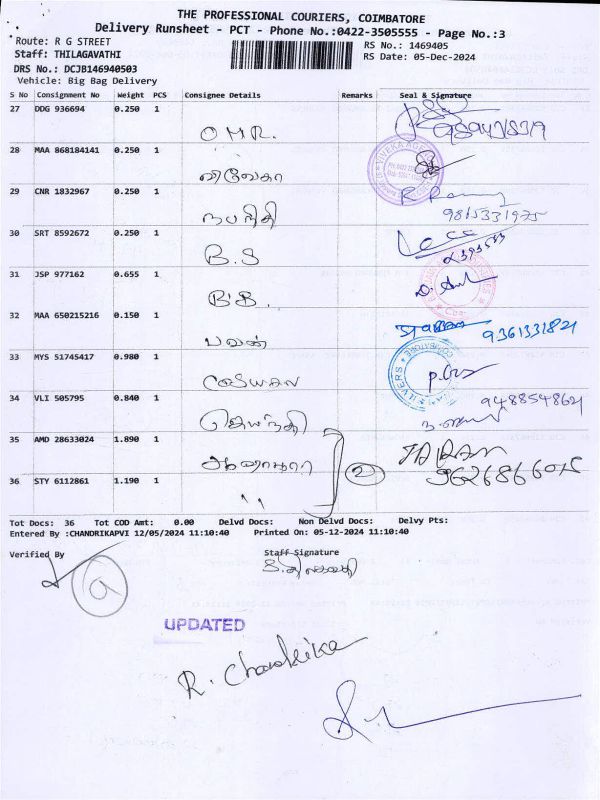 THE PROFESSIONAL COURIERS, COIMBATORE
Delivery Runsheet - PCT - Phone No.:0422-3505555 - Page No.:3
Route: R G STREET
RS No.: 1469405
Staff: THILAGAVATHI
RS Date: 05-Dec-2024
DRS No.: DCJB146940503
Vehicle: Big Bag Delivery
S No Consignment No Weight PCS Consignee Details Remarks Seal & Signature
27 DDG 936694 0.250 1
O.M.R.
28 MAA 868184141 0.250 1 VIVEKA
விவேகா
29 CNR 1832967 0.250 1
நபநிதி
9815331975
30 SRT 8592672 0.250 1
B.S
31 JSP 977162 0.655 1
B.B.
32 MAA 650215216 0.150 1
பவன் 9361331821
33 MYS 51745417 0.980 1 COIMBATORE SILVERS
34 VLI 505795 0.840 1 9488548621
ஜெயந்தி
35 AMD 28633024 1.890 1
2 9626866015
36 STY 6112861 1.190 1
"
Tot Docs: 36 Tot COD Amt: 0.00 Delvd Docs: Non Delvd Docs: Delvy Pts:
Entered By :CHANDRIKAPVI 12/05/2024 11:10:40 Printed On: 05-12-2024 11:10:40
Verified By Staff Signature
9
UPDATED
R. Chandrika